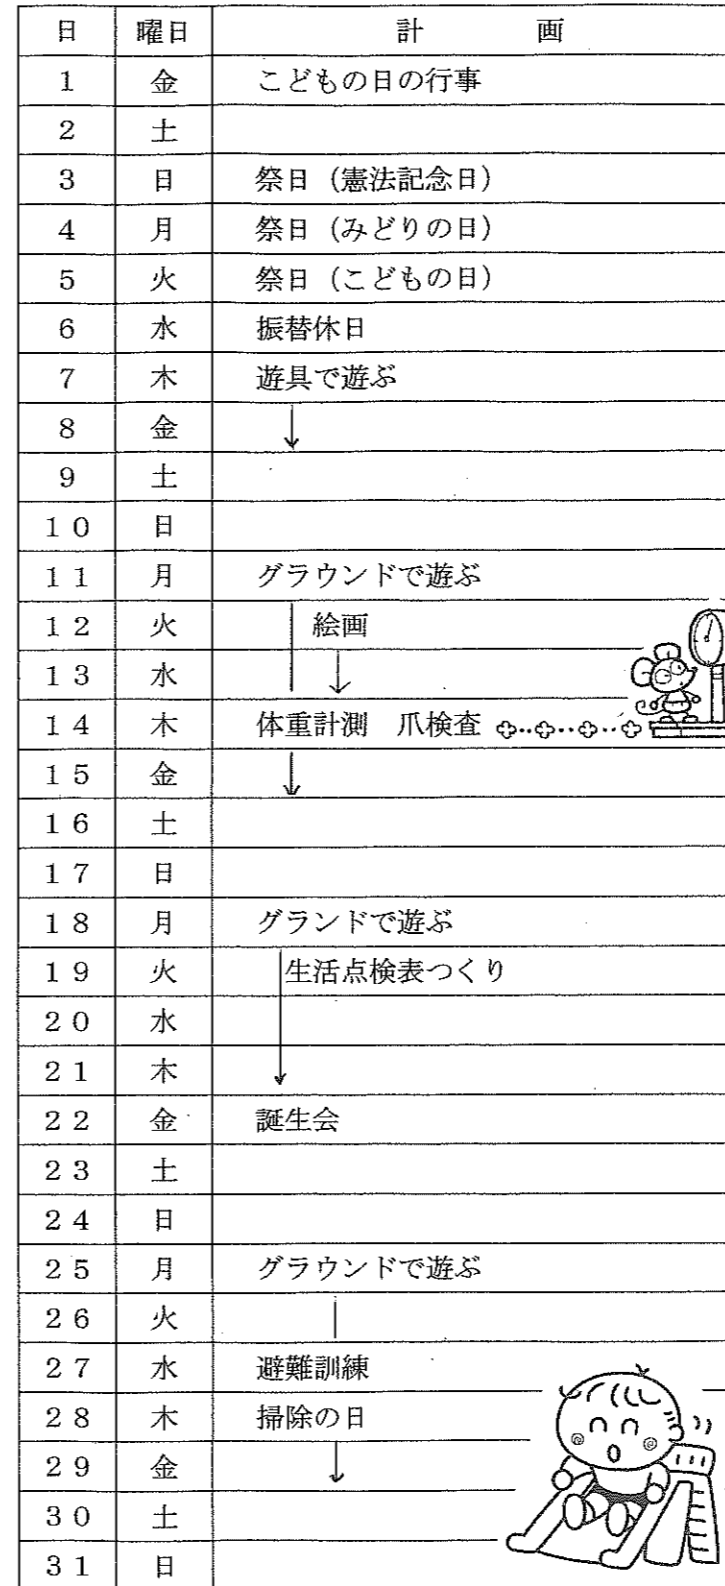 日 曜日 計 画
1 金 こどもの日の行事
2 土
3 日 祭日（憲法記念日）
4 月 祭日（みどりの日）
5 火 祭日（こどもの日）
6 水 振替休日
7 木 遊具で遊ぶ
8 金
9 土
10 日
11 月 グラウンドで遊ぶ
12 火 絵画
13 水
14 木 体重計測 爪検査
15 金
16 土
17 日
18 月 グランドで遊ぶ
19 火 生活点検表つくり
20 水
21 木
22 金 誕生会
23 土
24 日
25 月 グラウンドで遊ぶ
26 火
27 水 避難訓練
28 木 掃除の日
29 金
30 土
31 日